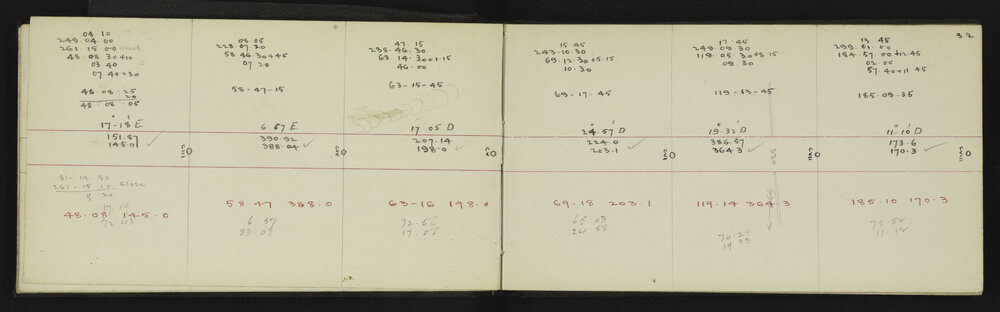 32
04.10
249.04.00
261.15.00 check
48.08 30+10
03 40
07 40+30
48-08-25
20
48-08-05
17-18 E
151.87
145.01
81-14.50
261-15.10 Close
0.20
17 19
72 43
48.08 145.0
08.05
228.07.20
58.46 30+45
07 20
58-47-15
6 57 E
390.92
388.04
58.47 388.0
6.57
83 03
47.15
238.46.30
63 14.30+1.15
46.00
63-15-45
17.05 D
207.14
198.0
63-16 198.0
72.56
15 45
243.10.30
69.12 30+5.15
10.30
69-17-45
24.57 D
224.0
203.1
69-18 203.1
65 03
24 58
17 45
249.09 30
119.05 30+8.15
09 30
119-13-45
19.32 D
386.57
364.3
119-14 364.3
70.25
19 35
13 45
299.01.00
184 57.00+12.45
02.00
57.40+11 45
185.09.35
11.10 D
173.6
170.3
185.10 170.3
11.12